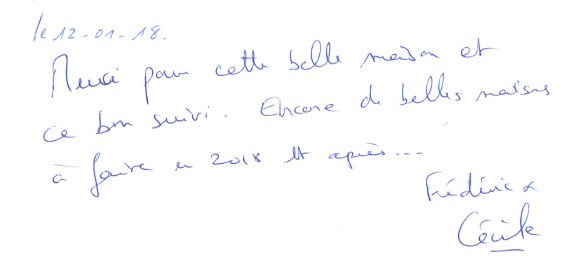 le 12-01-18.
Merci pour cette belle maison et
ce bon suivi. Encore de belles maisons
à faire en 2018 et après...
Frédéric &
Cécile